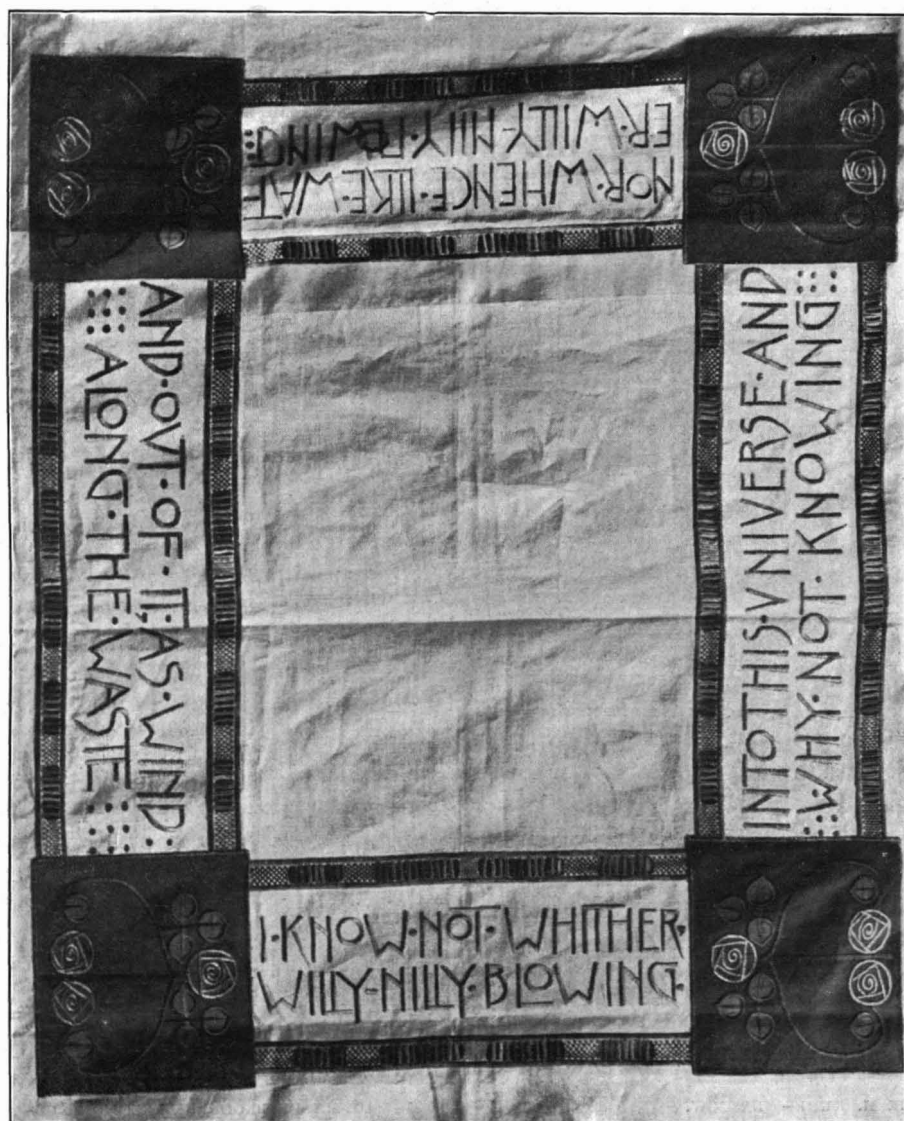 INTO THIS·VNIVERSE·AND
WHY·NOT·KNOWING
NOR·WHENCE·LIKE·WAT
ER·WILLY·NILLY·FLOWING
AND·OVT·OF·IT,·AS·WIND
ALONG·THE·WASTE
I·KNOW·NOT·WHITHER·
WILLY·NILLY·BLOWING·